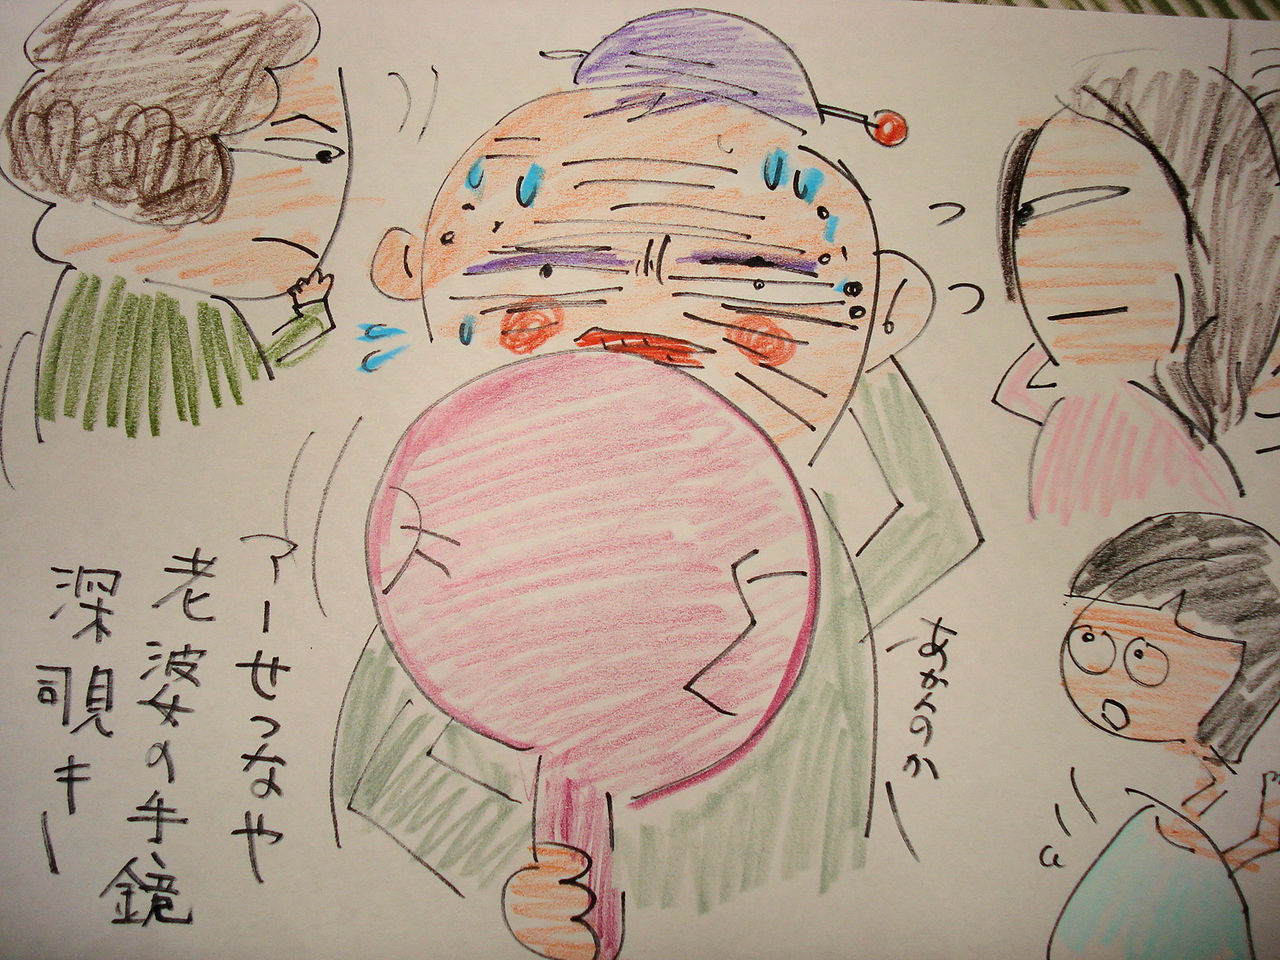 あかんのか
アーせつなや
老婆の手鏡
深覗キー